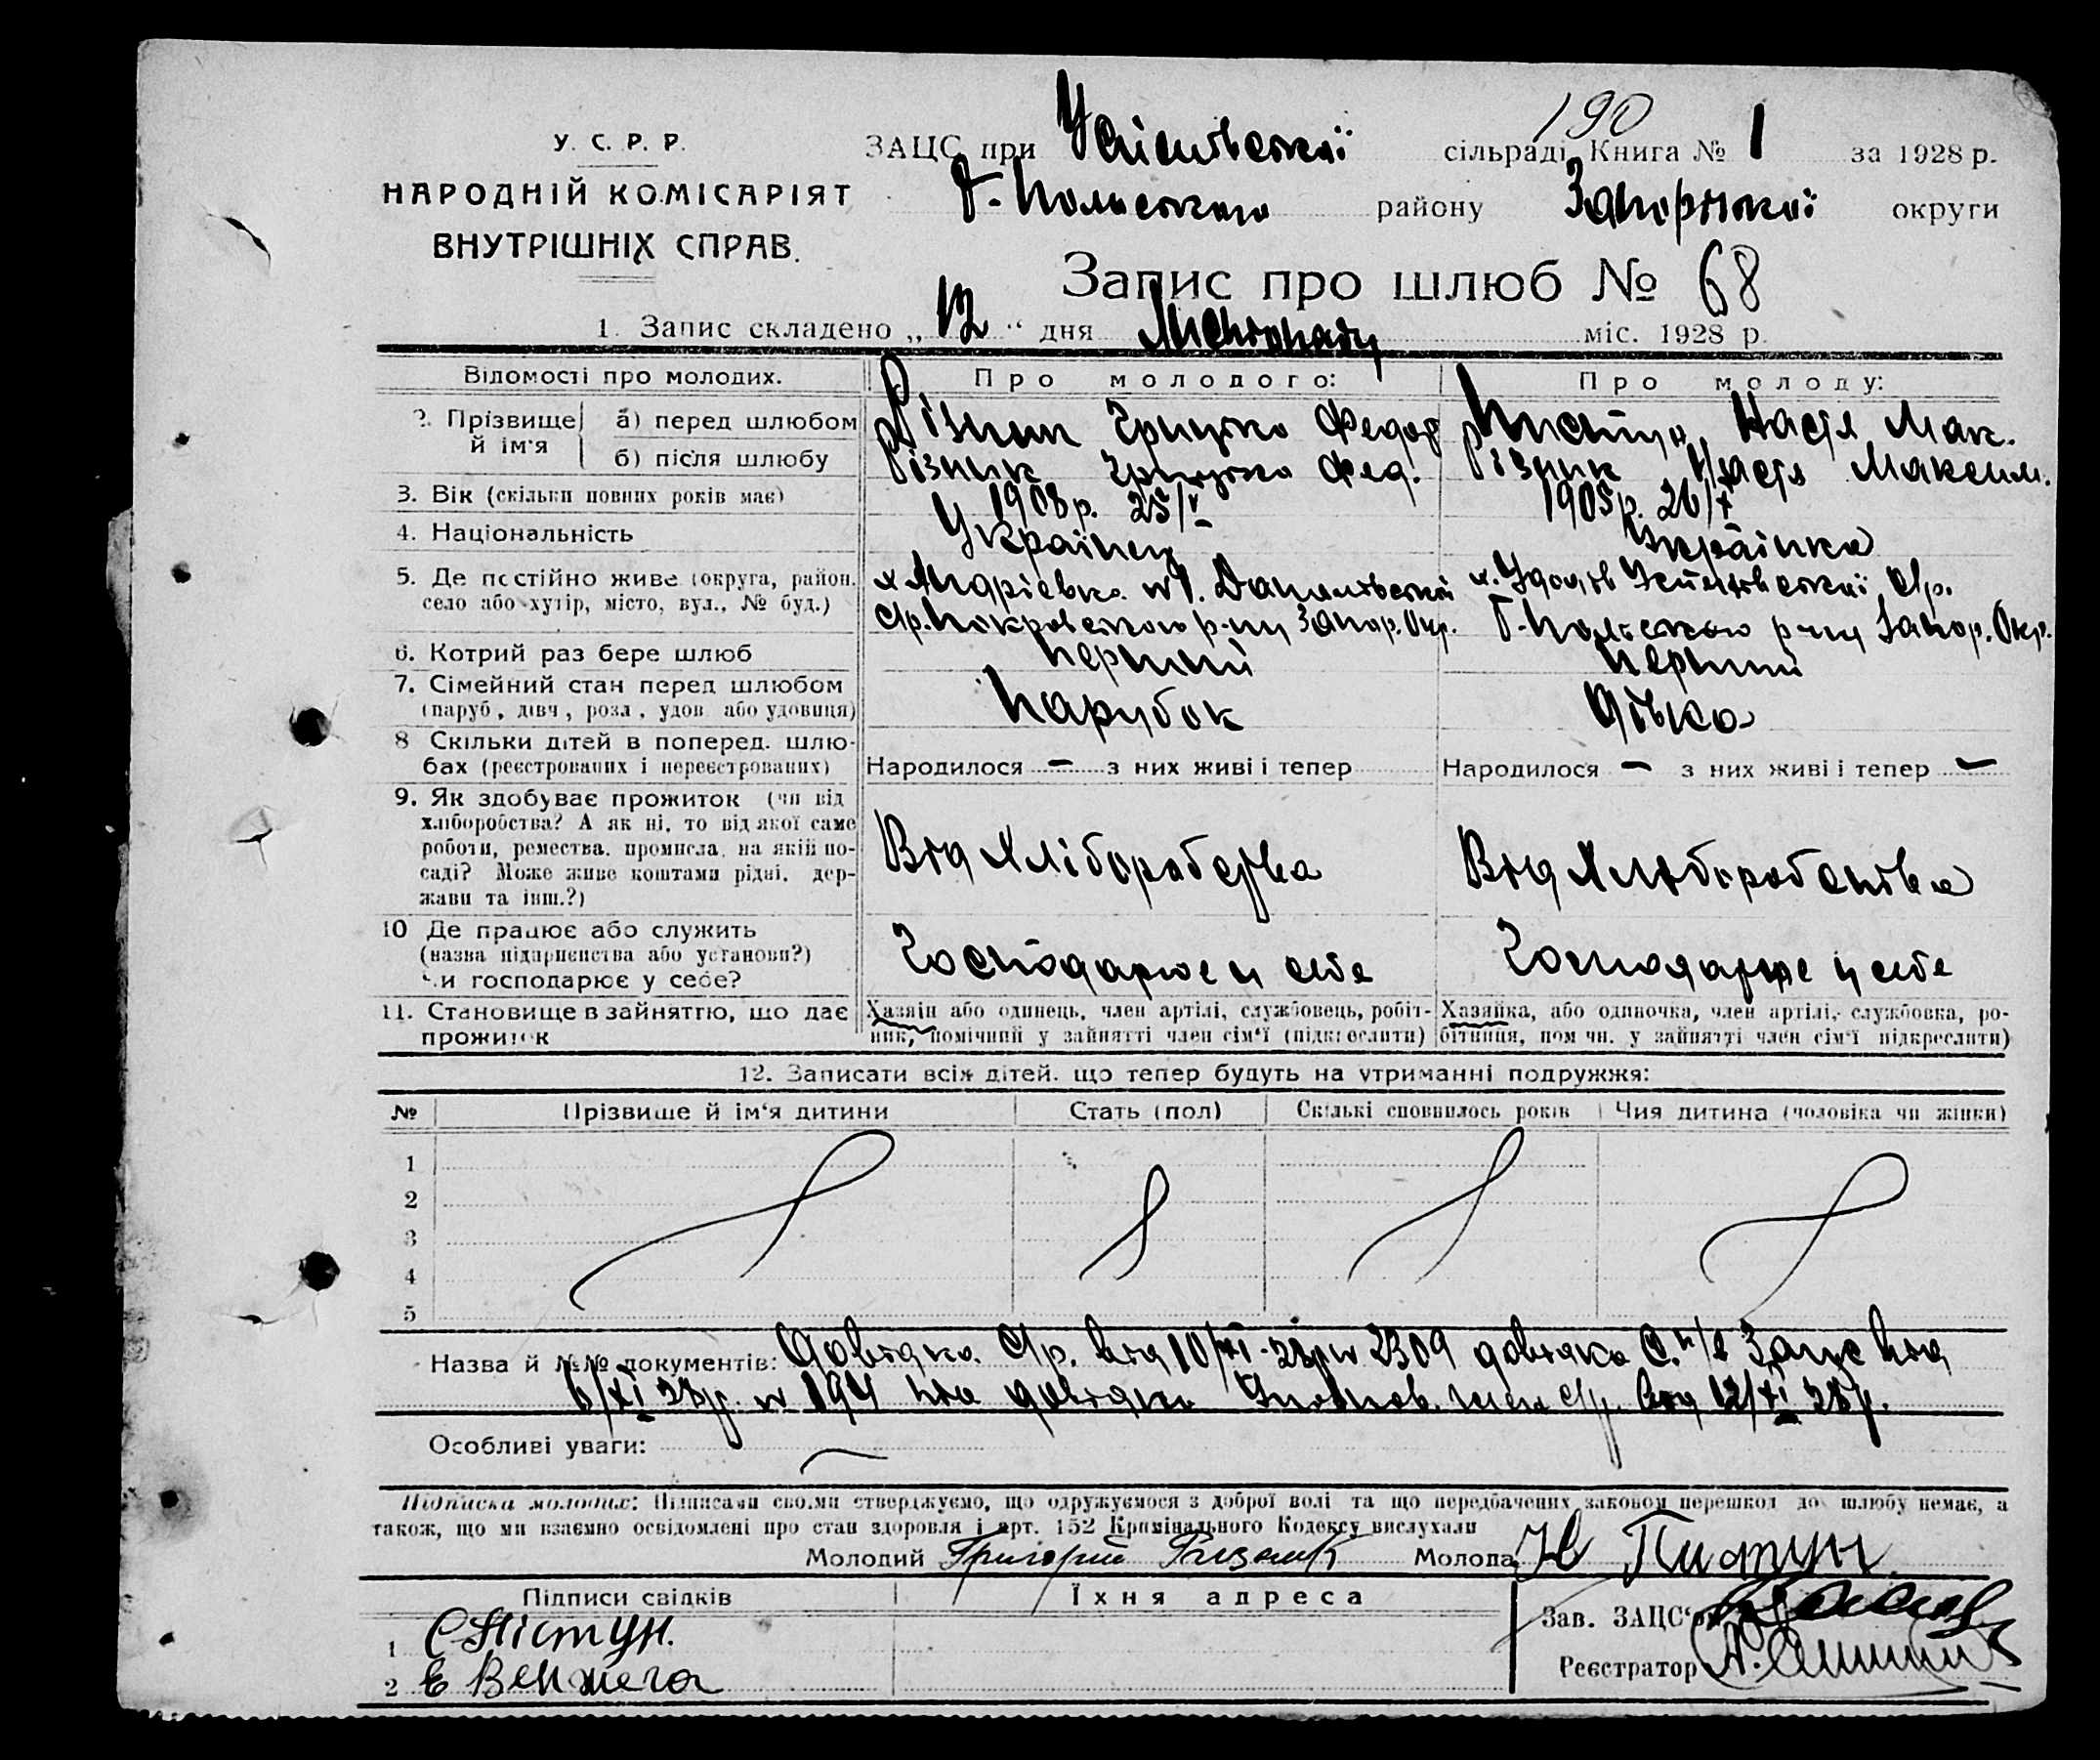 190
У. С. Р. Р.
НАРОДНІЙ КОМІСАРІЯТ
ВНУТРІШНІХ СПРАВ.
ЗАЦС при сільраді, Книга № 1 за 1928 р.
району Запоржської округи
Запис про шлюб № 68
1. Запис складено „ 12 “ дня Листопаду міс. 1928 р.
Відомості про молодих.
Про молодого:
Про молоду:
2. Прізвище й ім'я
а) перед шлюбом
Різник Грицько Федор
Настя Мак.
б) після шлюбу
Різник Грицько Фед.
Різник Настя Максим.
3. Вік (скільки повних років має)
1908 р. 25/V
1905 р. 26/X
4. Національність
Українец
Українка
5. Де постійно живе (округа, район, село або хутір, місто, вул., № буд.)
х Андріевка
с/р. Покровського р-ну Запор. Окр.
с/р.
Г-Польського р-ну Запор. Окр.
6. Котрий раз бере шлюб
Перший
Перший
7. Сімейний стан перед шлюбом
(паруб., дівч., розл., удов. або удовиця)
Парубок
Дівка
8 Скільки дітей в поперед. шлюбах (реєстрованих і нереєстрованих)
Народилося — з них живі і тепер
Народилося — з них живі і тепер —
9. Як здобуває прожиток (чи від
хліборобства? А як ні, то від якої саме
роботи, ремества, промисла, на якій по-
саді? Може живе коштами рідні, дер-
жави та інш.?)
Від Хліборобства
Від Хліборобства
10 Де працює або служить
(назва підприємства або установи?)
Чи господарює у себе?
Господарює у себе
Господарює у себе
11. Становище в зайняттю, що дає
прожиток
Хазяїн або одинець, член артілі, службовець, робіт-
ник, помічний у зайнятті член сім'ї (підкреслити)
Хазяйка, або одиночка, член артілі, службовка, ро-
бітниця, помічн. у зайнятті член сім'ї підкреслити)
12. Записати всіх дітей, що тепер будуть на утриманні подружжя:
№ Прізвище й ім'я дитини Стать (пол) Скількі сповнилось років Чия дитина (чоловіка чи жінки)
1
2
3
4
5
Назва й №№ документів: Довідка С/р. від 10/XI-28р № 2309 довідка
6/XI 28р. № 194 довідка с/р. від 12/XI 28р.
Особливі уваги: —
Підписка молодих: Підписами своїми стверджуємо, що одружуємося з доброї волі та що передбачених законом перешкод до шлюбу немає, а
також, що ми взаємно освідомлені про стан здоровля і арт. 152 Кримінального Кодексу вислухали
Молодий Григорий Молода Н Пистун
Підписи свідків
Їхня адреса
1 С Пістун.
2 Е Венжега
Зав. ЗАЦС'ом
Реєстратор